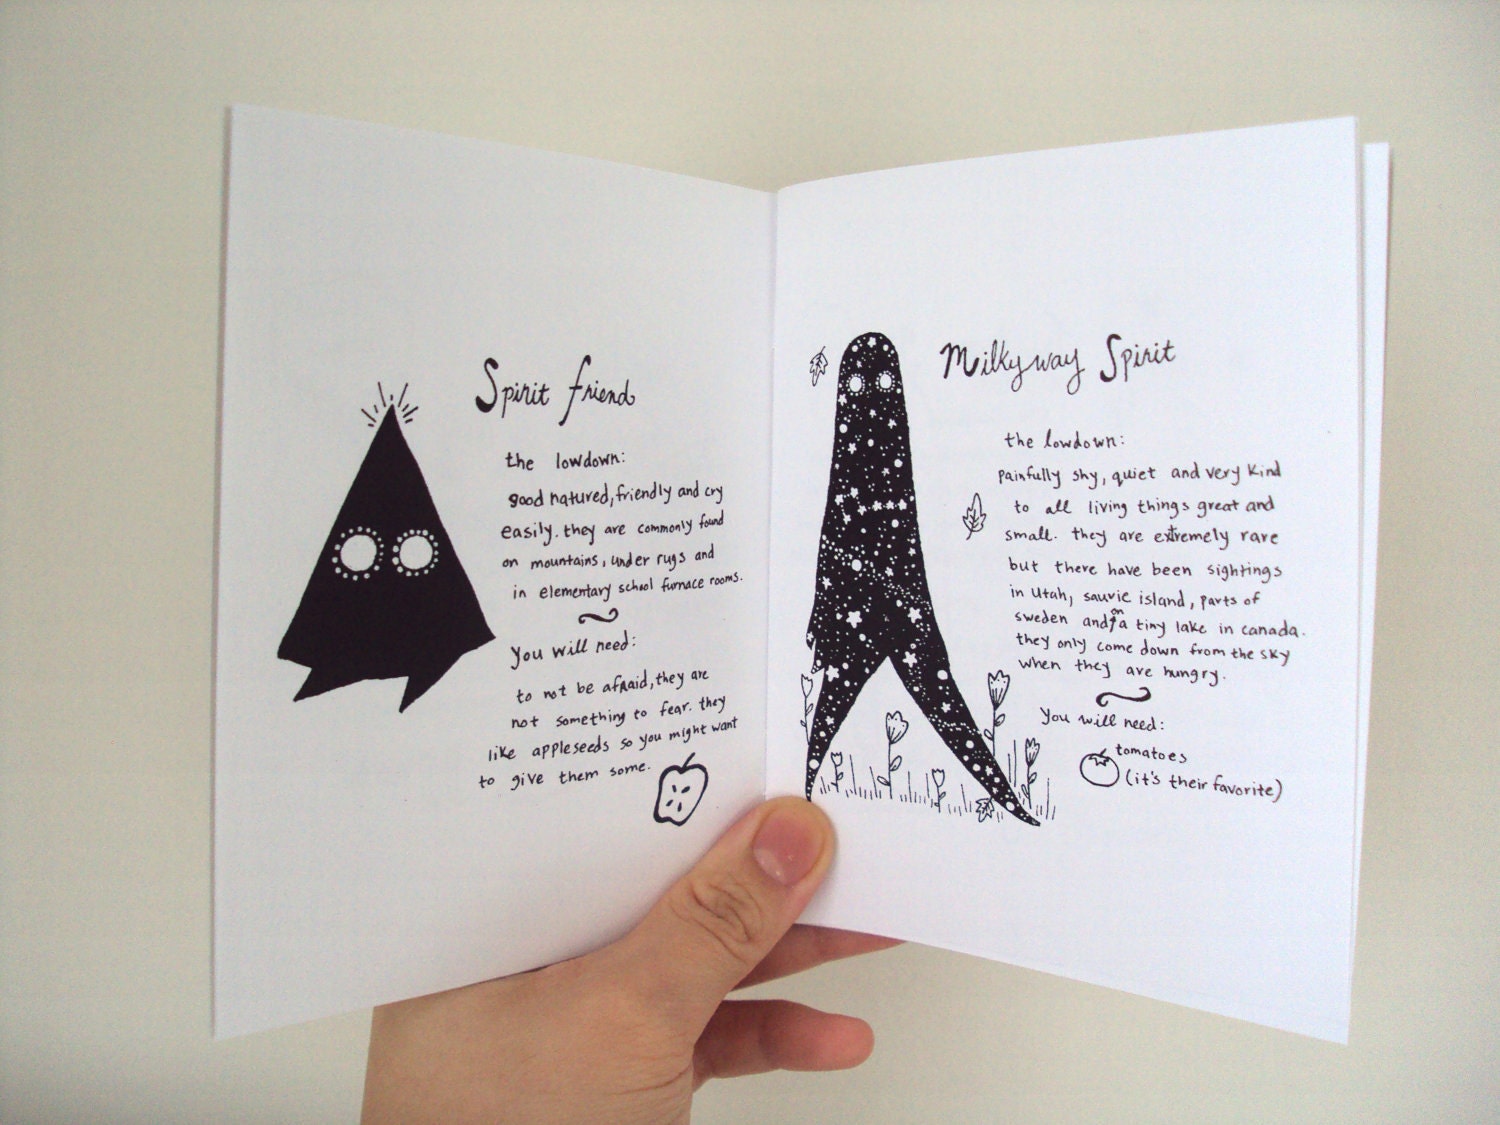 Spirit friend
the lowdown:
good natured, friendly and cry
easily. they are commonly found
on mountains, under rugs and
in elementary school furnace rooms.
you will need:
to not be afraid, they are
not something to fear. they
like appleseeds so you might want
to give them some.
Milkyway Spirit
the lowdown:
painfully shy, quiet and very kind
to all living things great and
small. they are extremely rare
but there have been sightings
in Utah, sauvie island, parts of
sweden and on a tiny lake in canada.
they only come down from the sky
when they are hungry.
you will need:
tomatoes
(it's their favorite)